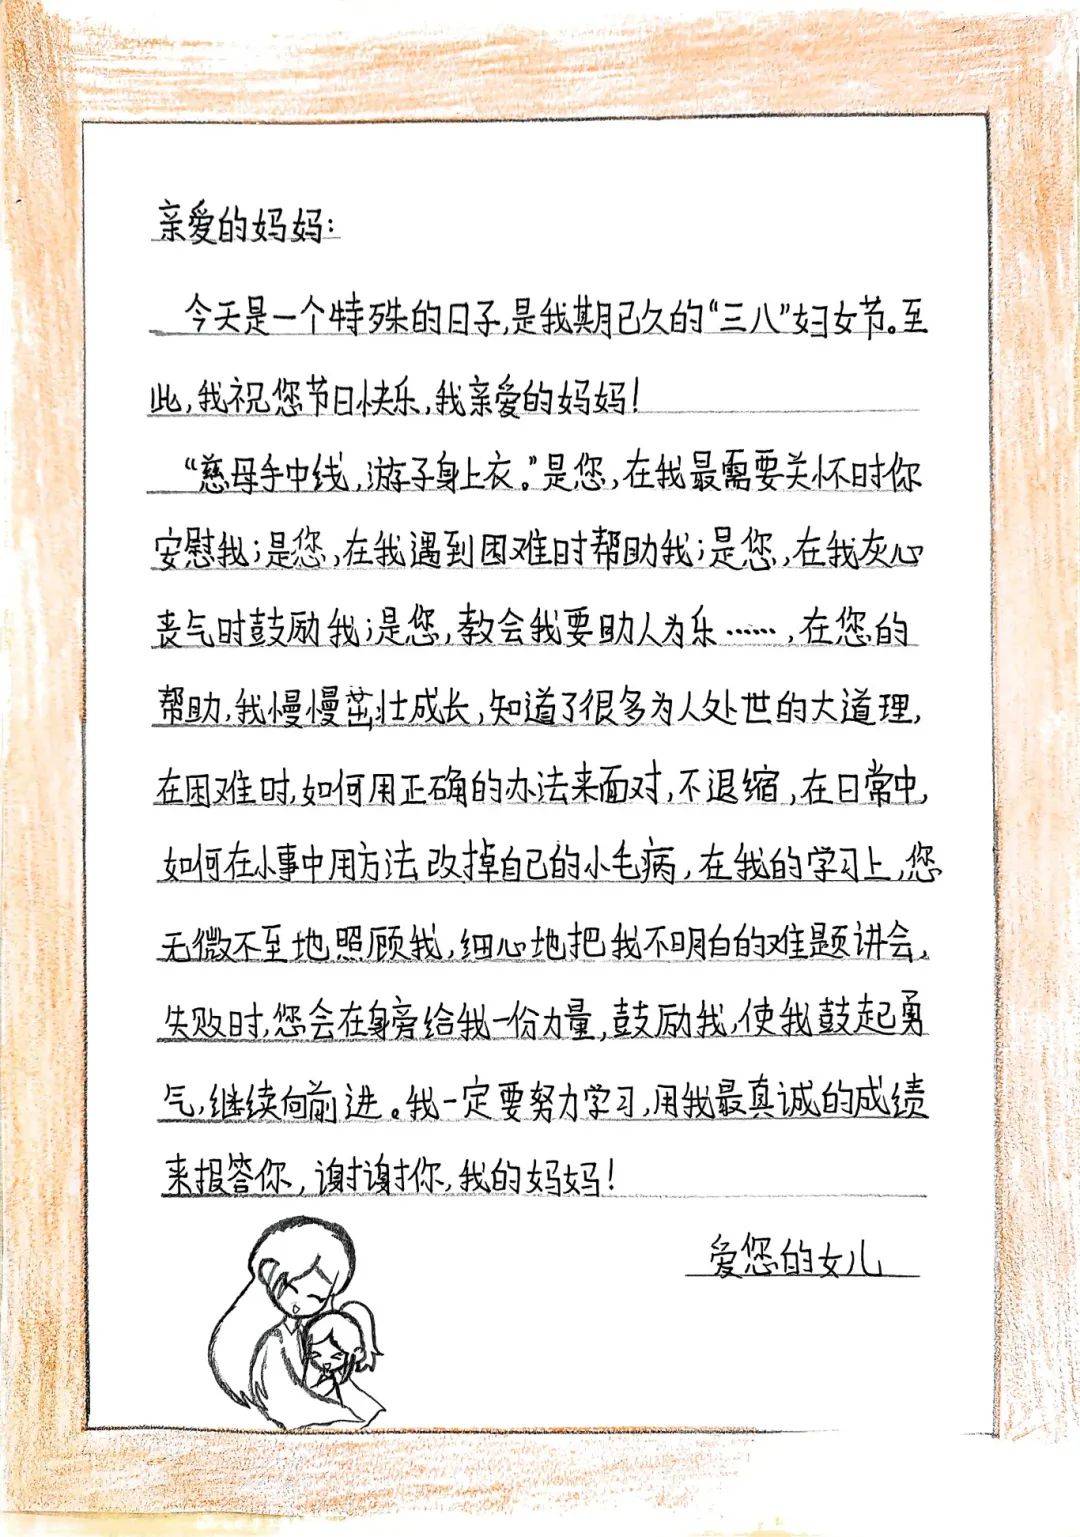 亲爱的妈妈:
今天是一个特殊的日子,是我期已久的“三八”妇女节。至
此,我祝您节日快乐,我亲爱的妈妈!
“慈母手中线,游子身上衣。”是您,在我最需要关怀时你
安慰我;是您,在我遇到困难时帮助我;是您,在我灰心
丧气时鼓励我;是您,教会我要助人为乐……,在您的
帮助,我慢慢茁壮成长,知道了很多为人处世的大道理,
在困难时,如何用正确的办法来面对,不退缩,在日常中,
如何在小事中用方法改掉自己的小毛病,在我的学习上,您
无微不至地照顾我,细心地把我不明白的难题讲会,
失败时,您会在身旁给我一份力量,鼓励我,使我鼓起勇
气,继续向前进。我一定要努力学习,用我最真诚的成绩
来报答你,谢谢你,我的妈妈!
爱您的女儿